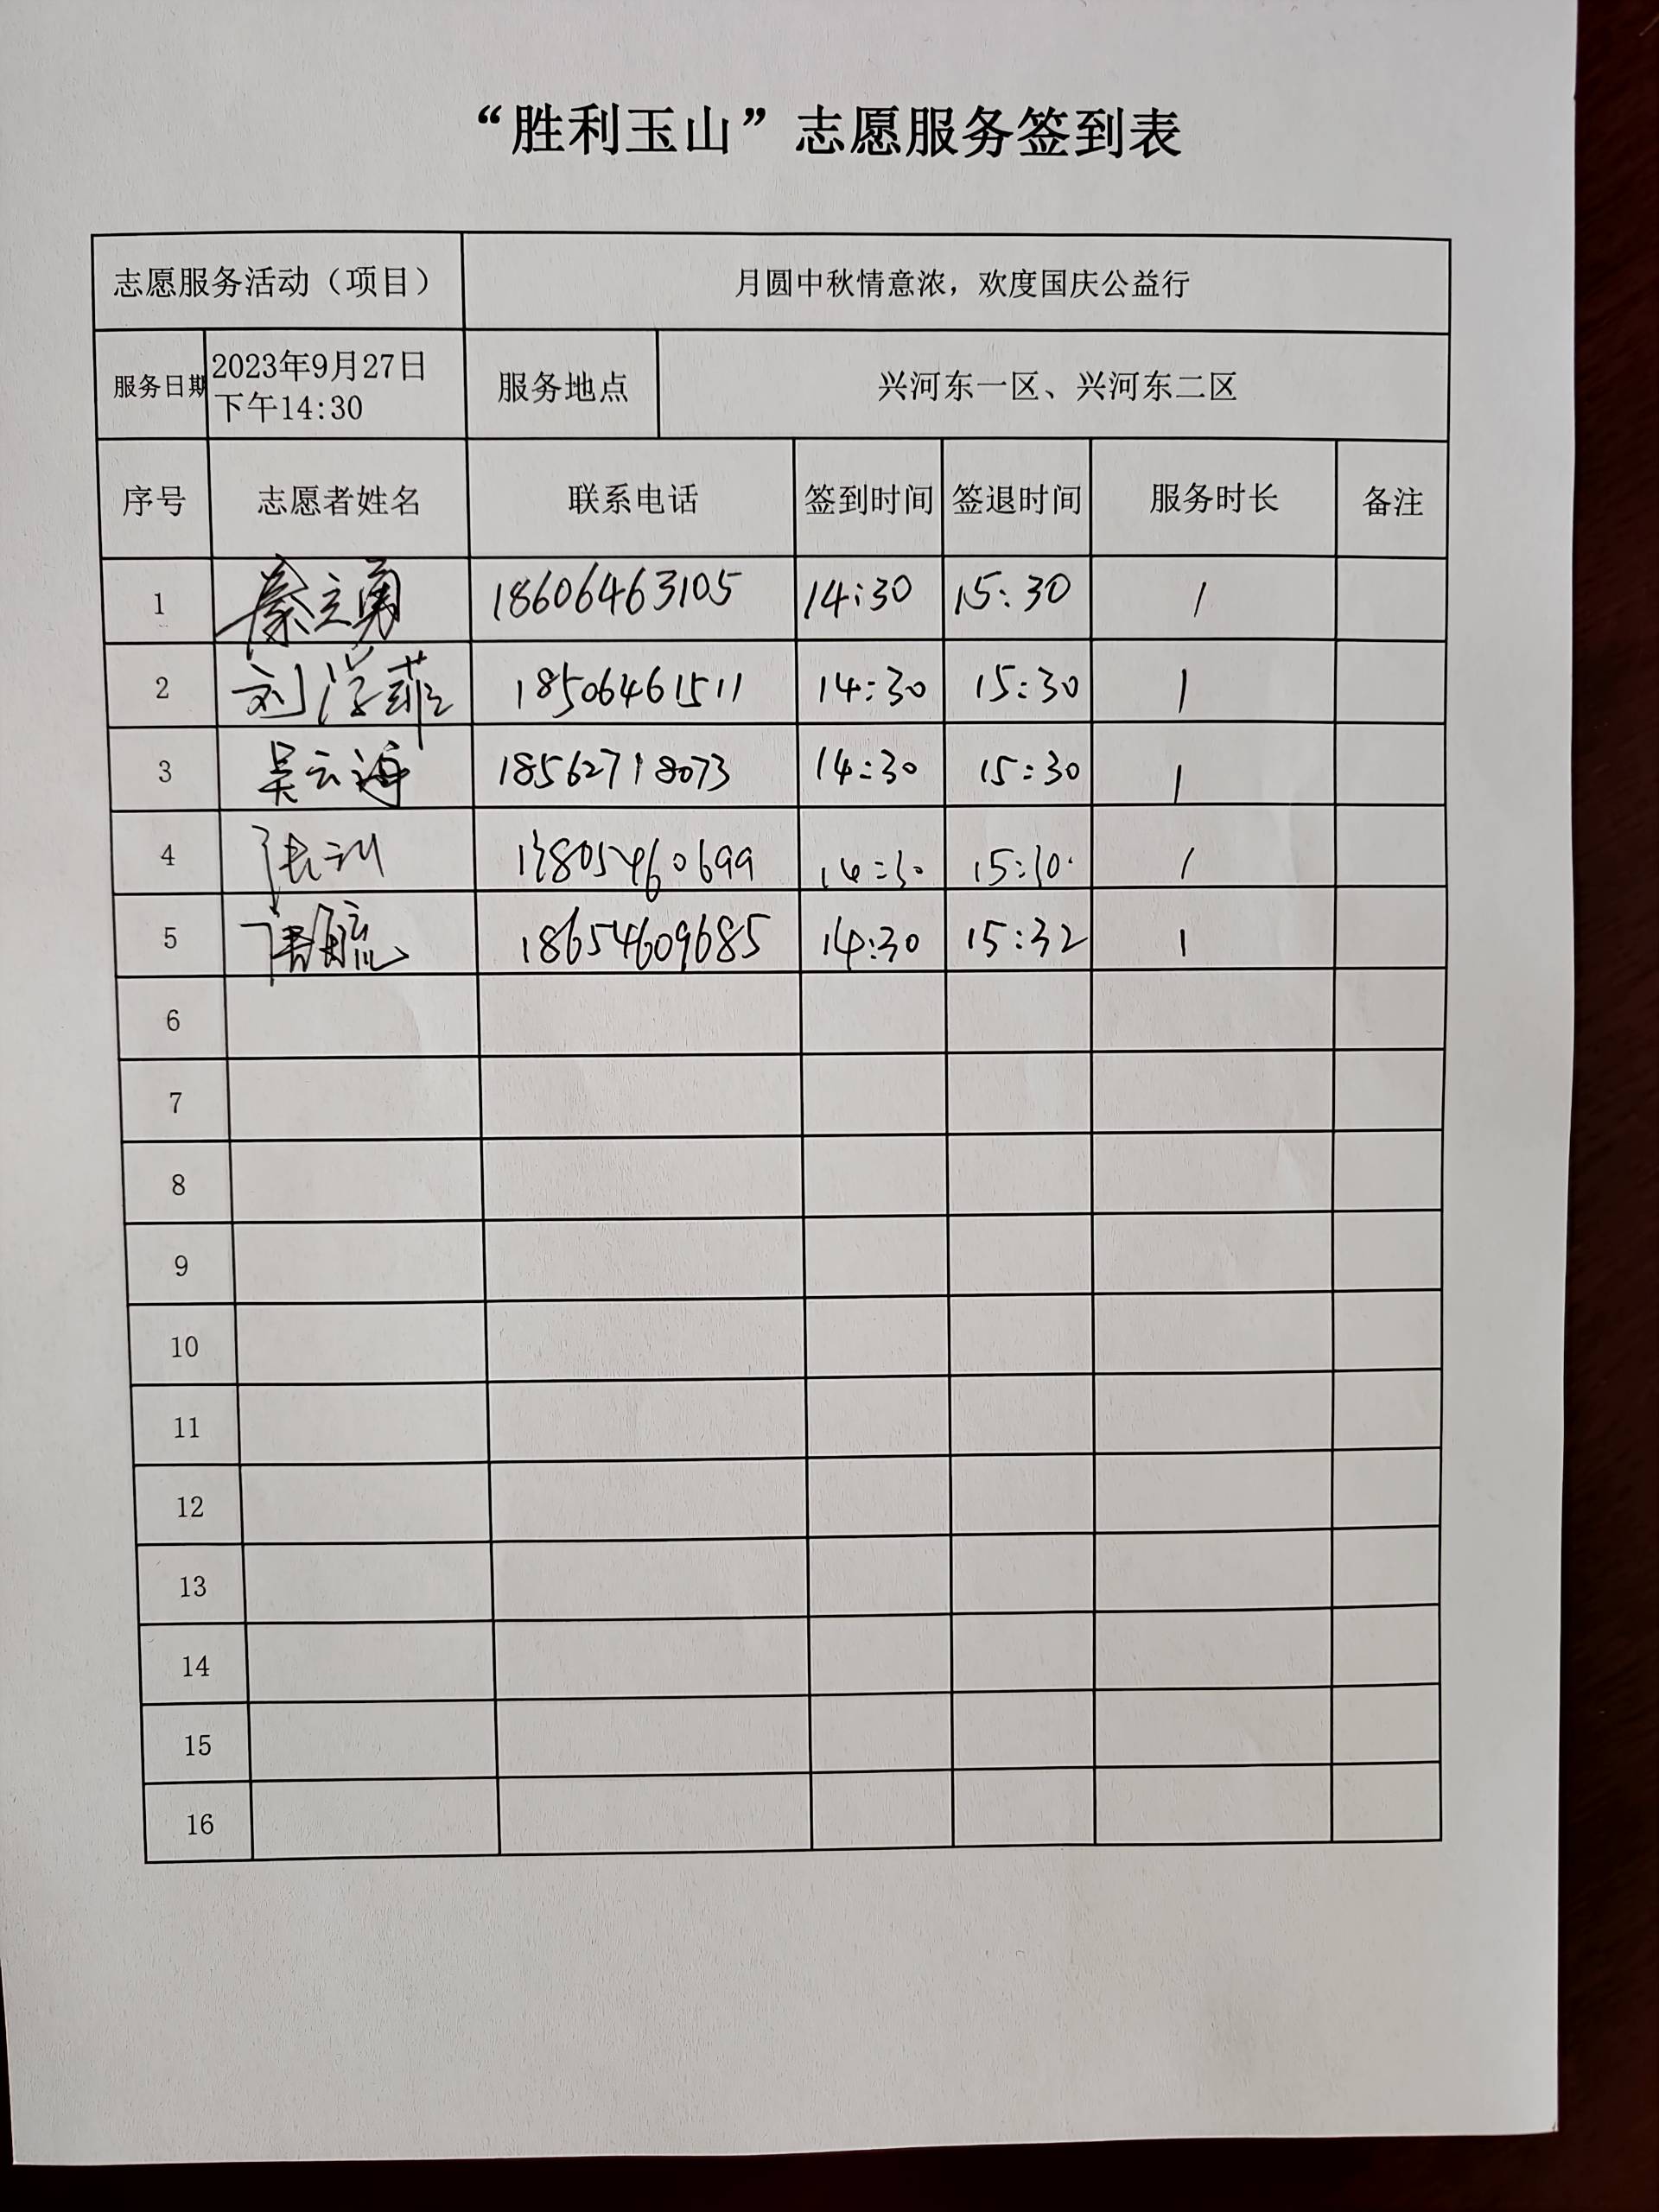 “胜利玉山”志愿服务签到表
志愿服务活动（项目） 月圆中秋情意浓，欢度国庆公益行
服务日期 2023年9月27日 下午14:30 服务地点 兴河东一区、兴河东二区
序号 志愿者姓名 联系电话 签到时间 签退时间 服务时长 备注
1 秦立勇 18606463105 14:30 15:30 1
2 刘学菲 18506461511 14:30 15:30 1
3 吴云海 18562718073 14:30 15:30 1
4 张训 13805460699 14:30 15:30 1
5 18654609685 14:30 15:32 1
6
7
8
9
10
11
12
13
14
15
16